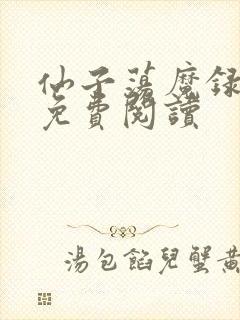 仙子蕩魔録
免費閱讀
湯包餡兒蟹黃